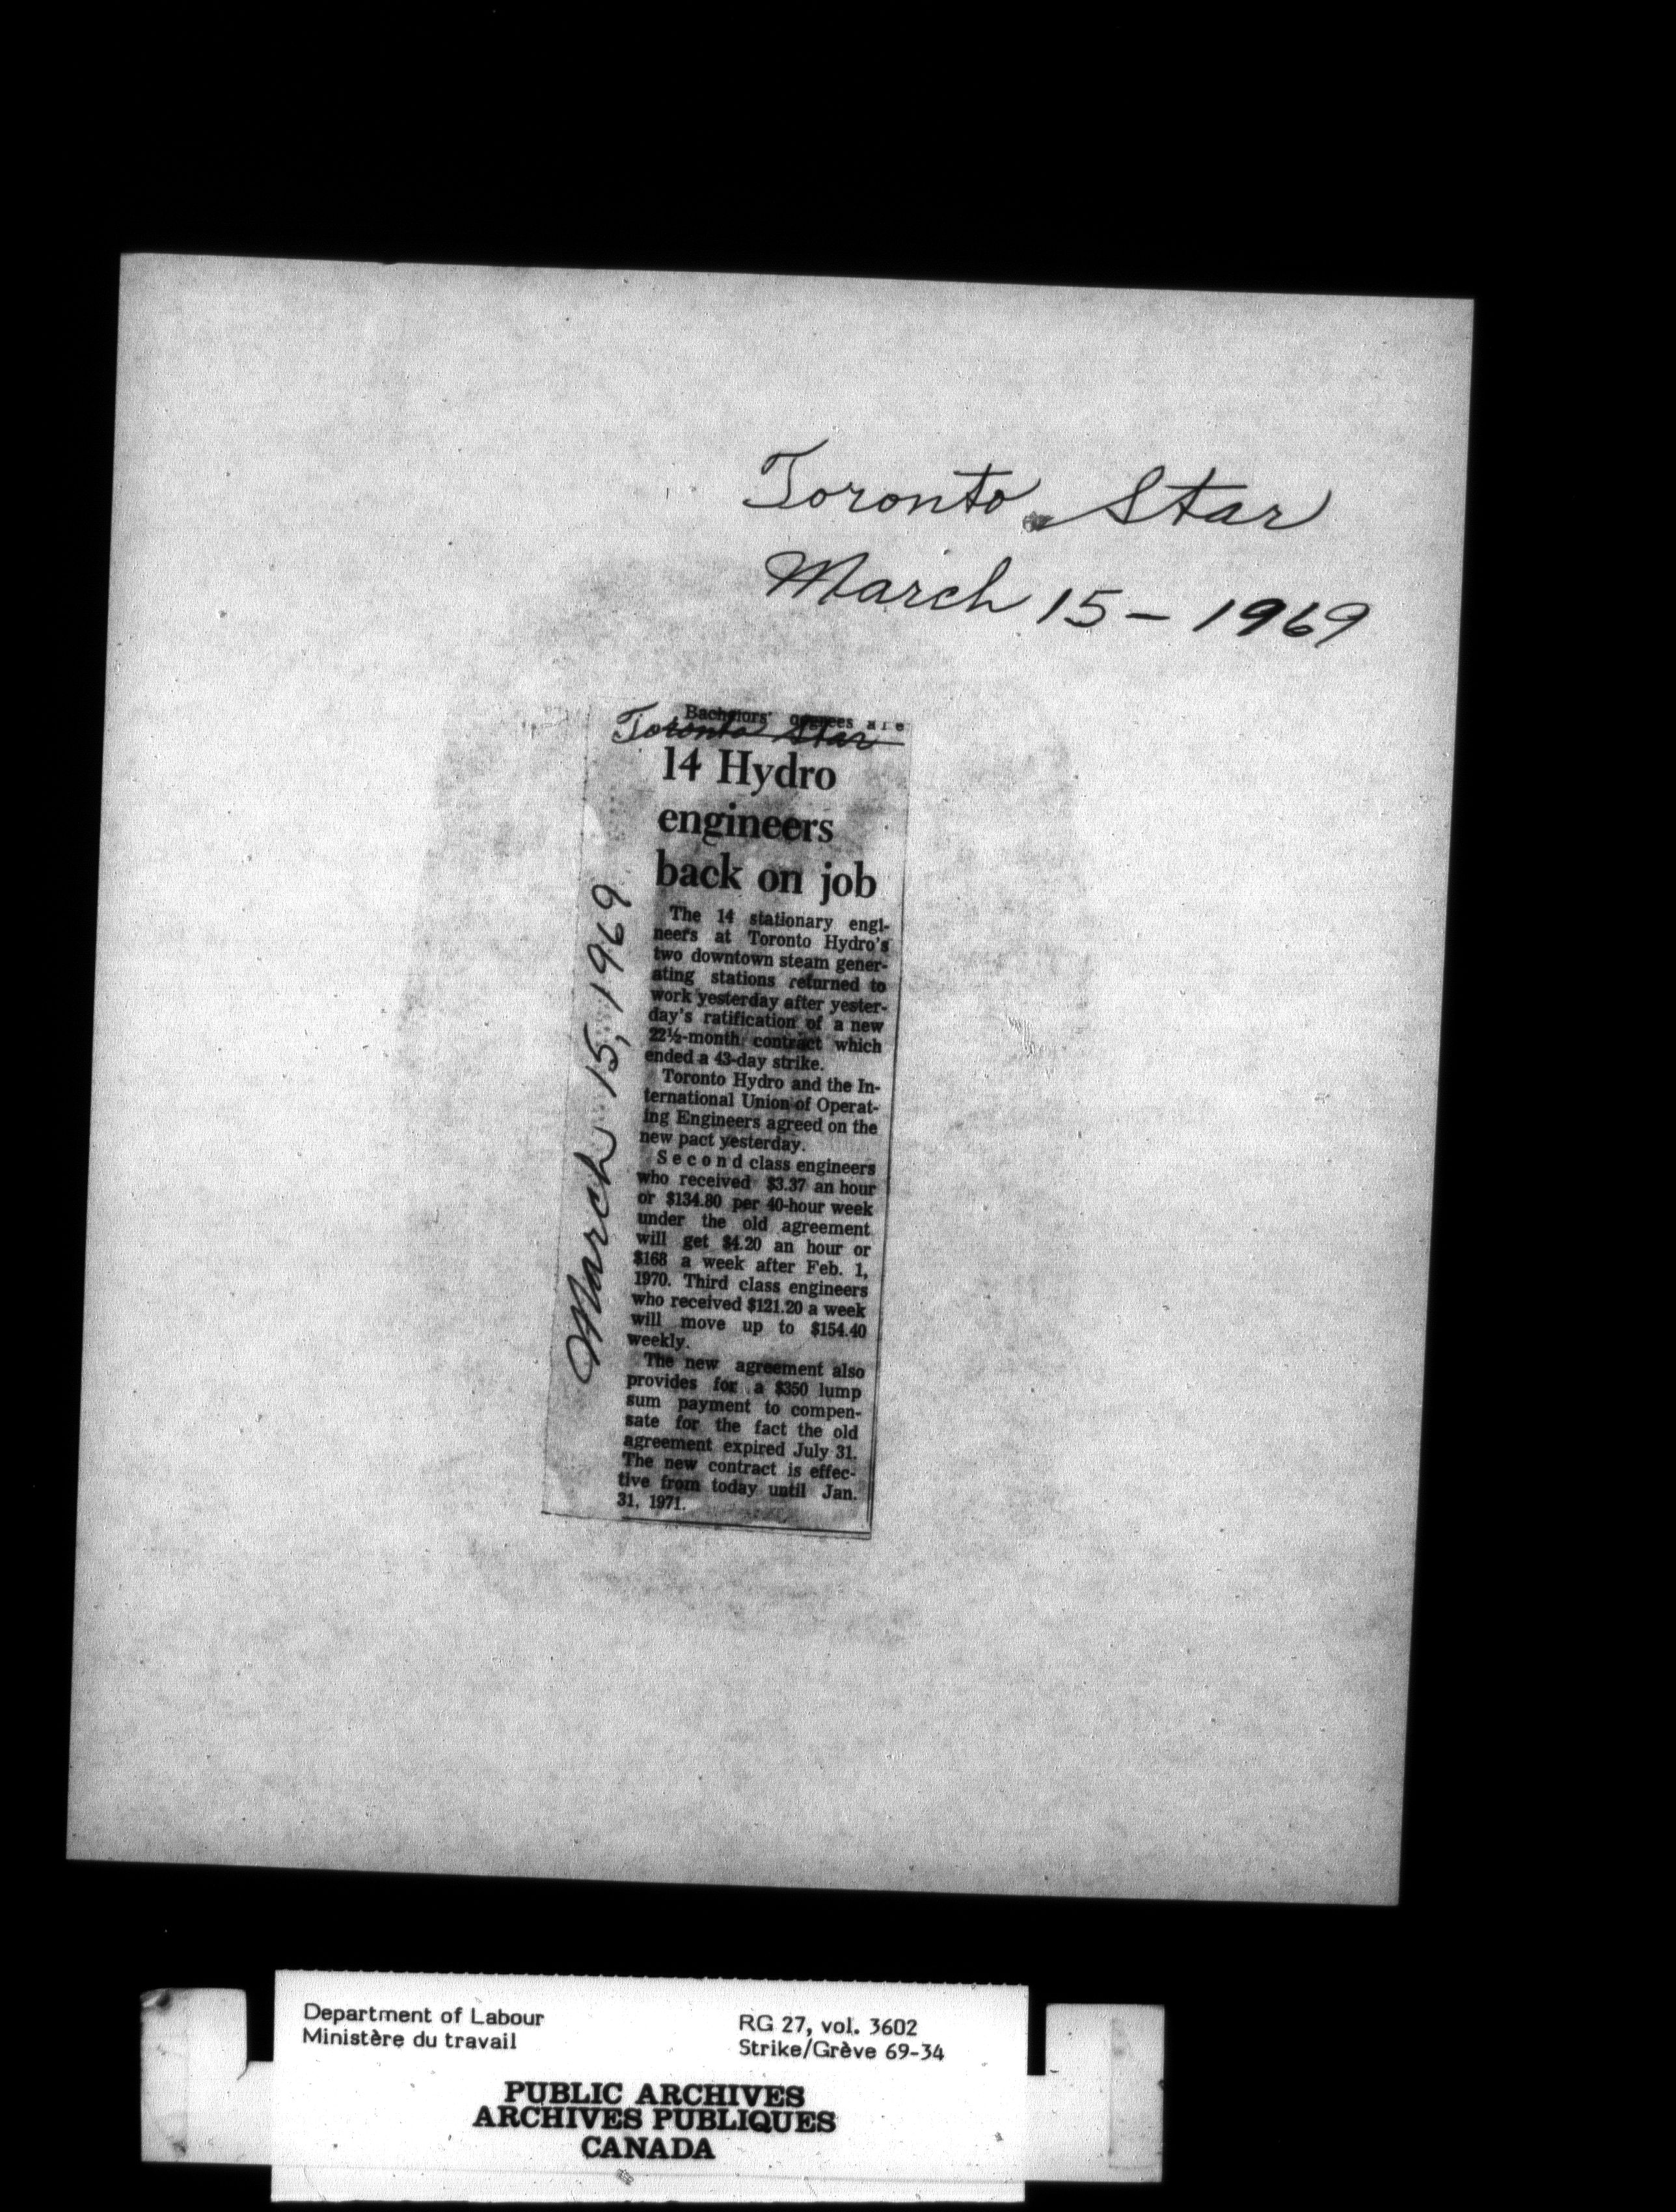 Toronto Star
March 15 - 1969
Bachelors' degrees are
Toronto Star
March 15, 1969
14 Hydro
engineers
back on job
The 14 stationary engi-
neers at Toronto Hydro's
two downtown steam gener-
ating stations returned to
work yesterday after yester-
day's ratification of a new
22½-month contract which
ended a 43-day strike.
Toronto Hydro and the In-
ternational Union of Operat-
ing Engineers agreed on the
new pact yesterday.
Second class engineers
who received $3.37 an hour
or $134.80 per 40-hour week
under the old agreement
will get $4.20 an hour or
$168 a week after Feb. 1,
1970. Third class engineers
who received $121.20 a week
will move up to $154.40
weekly.
The new agreement also
provides for a $350 lump
sum payment to compen-
sate for the fact the old
agreement expired July 31.
The new contract is effec-
tive from today until Jan.
31, 1971.
Department of Labour
Ministère du travail
RG 27, vol. 3602
Strike/Grève 69-34
PUBLIC ARCHIVES
ARCHIVES PUBLIQUES
CANADA